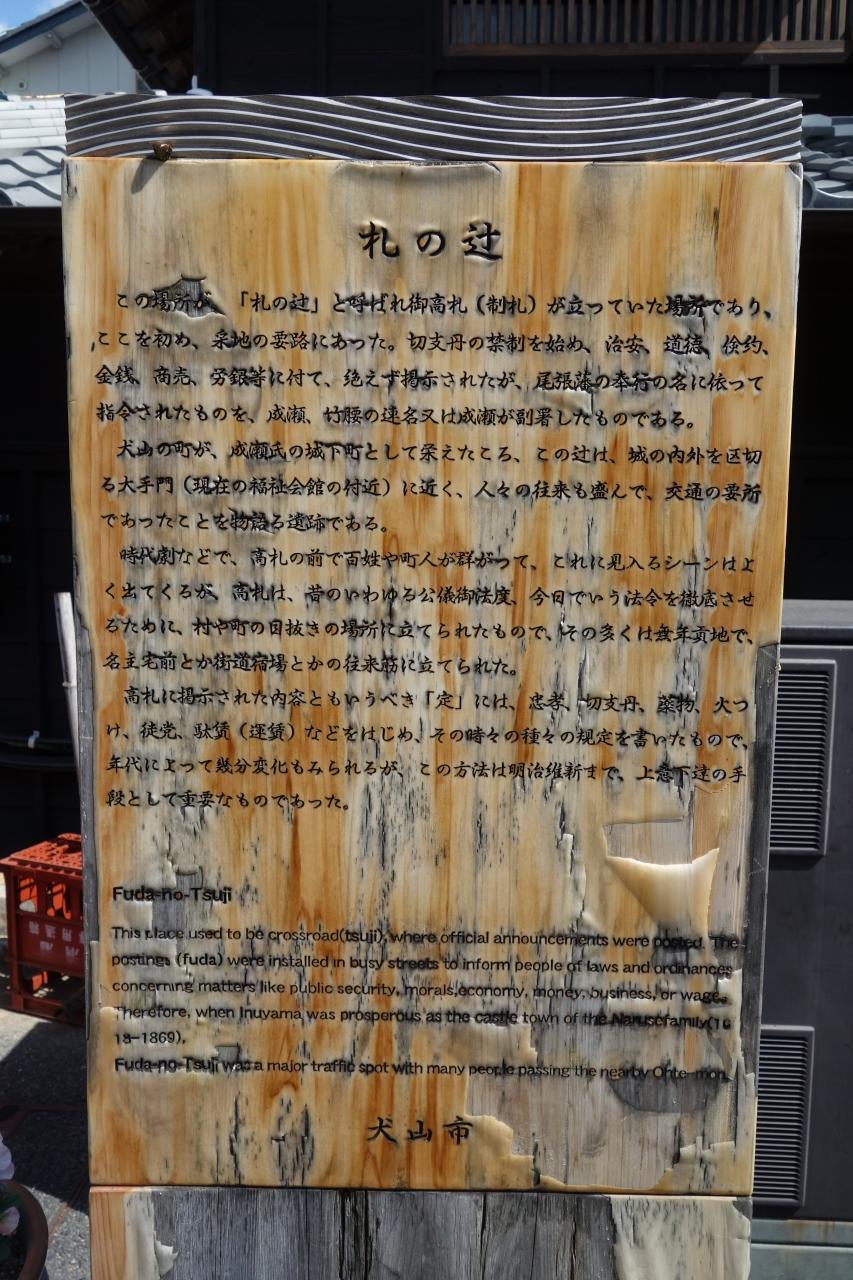 札の辻
この場所が、「札の辻」と呼ばれ御高札（制札）が立っていた場所であり、
ここを初め、采地の要路にあった。切支丹の禁制を始め、治安、道徳、倹約、
金銭、商売、労銀等に付て、絶えず掲示されたが、尾張藩の奉行の名に依って
指令されたものを、成瀬、竹腰の連名又は成瀬が副署したものである。
犬山の町が、成瀬氏の城下町として栄えたころ、この辻は、城の内外を区切
る大手門（現在の福祉会館の付近）に近く、人々の往来も盛んで、交通の要所
であったことを物語る遺跡である。
時代劇などで、高札の前で百姓や町人が群がって、これに見入るシーンはよ
く出てくるが、高札は、昔のいわゆる公儀御法度、今日でいう法令を徹底させ
るために、村や町の目抜きの場所に立てられたもので、その多くは無年貢地で、
名主宅前とか街道宿場とかの往来筋に立てられた。
高札に掲示された内容ともいうべき「定」には、忠孝、切支丹、薬物、火つ
け、徒党、駄賃（運賃）などをはじめ、その時々の種々の規定を書いたもので、
年代によって幾分変化もみられるが、この方法は明治維新まで、上意下達の手
段として重要なものであった。
Fuda-no-Tsuji
This place used to be crossroad(tsuji), where official announcements were posted. The
postings (fuda) were installed in busy streets to inform people of laws and ordinances
concerning matters like public security, morals,economy, money, business, or wage.
Therefore, when Inuyama was prosperous as the castle town of the Narusefamily(16
18-1869),
Fuda-no-Tsuji was a major traffic spot with many people passing the nearby Ohte-mon.
犬山市